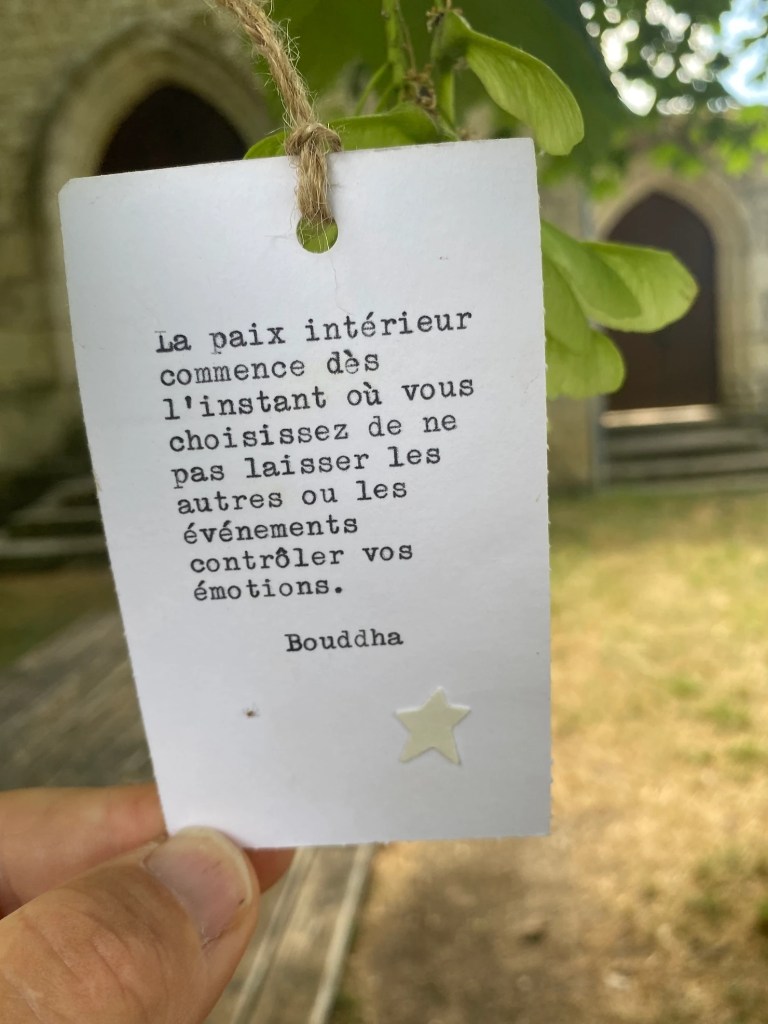 La paix intérieur
commence dès
l'instant où vous
choisissez de ne
pas laisser les
autres ou les
événements
contrôler vos
émotions.
Bouddha